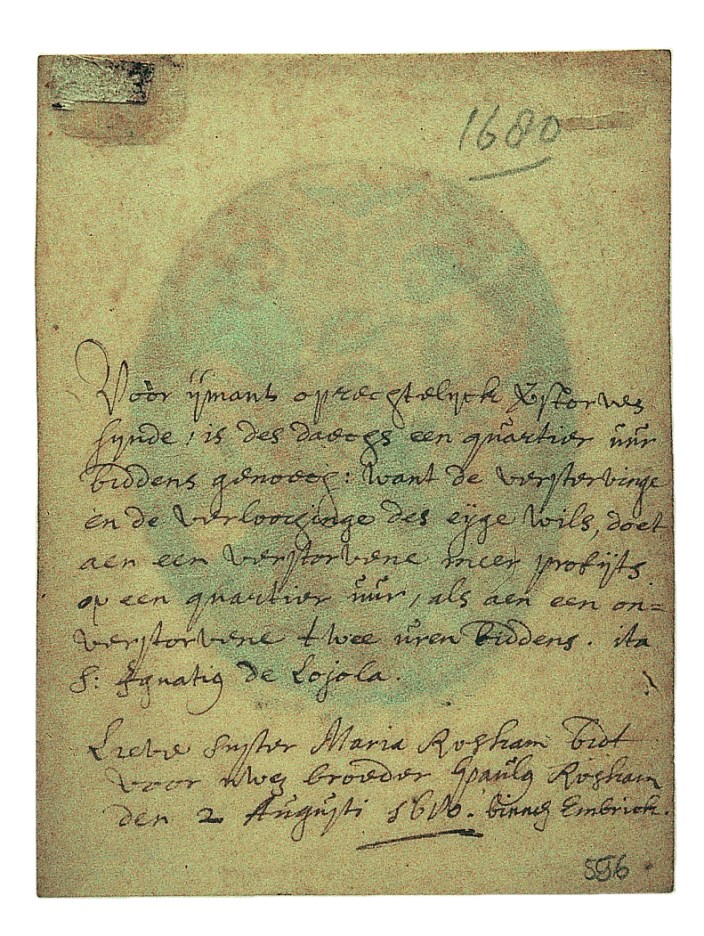 1680
Voor ijmant oprechtelijck v̄storven
sijnde, is des daechs een quartier uur
biddens genoech: want de verstervinge
en de verloochinge des eijge wils, doet
aen een verstorvene meer profijts
op een quartier uur, als aen een on=
verstorvene twee uren biddens. ita
S: Ignatiꝰ de Lojola.
Lieve suster Maria Rosham bidt
voor uwen broeder Paulꝰ Rosham
den 2 Augusti binnen Embrick.
596